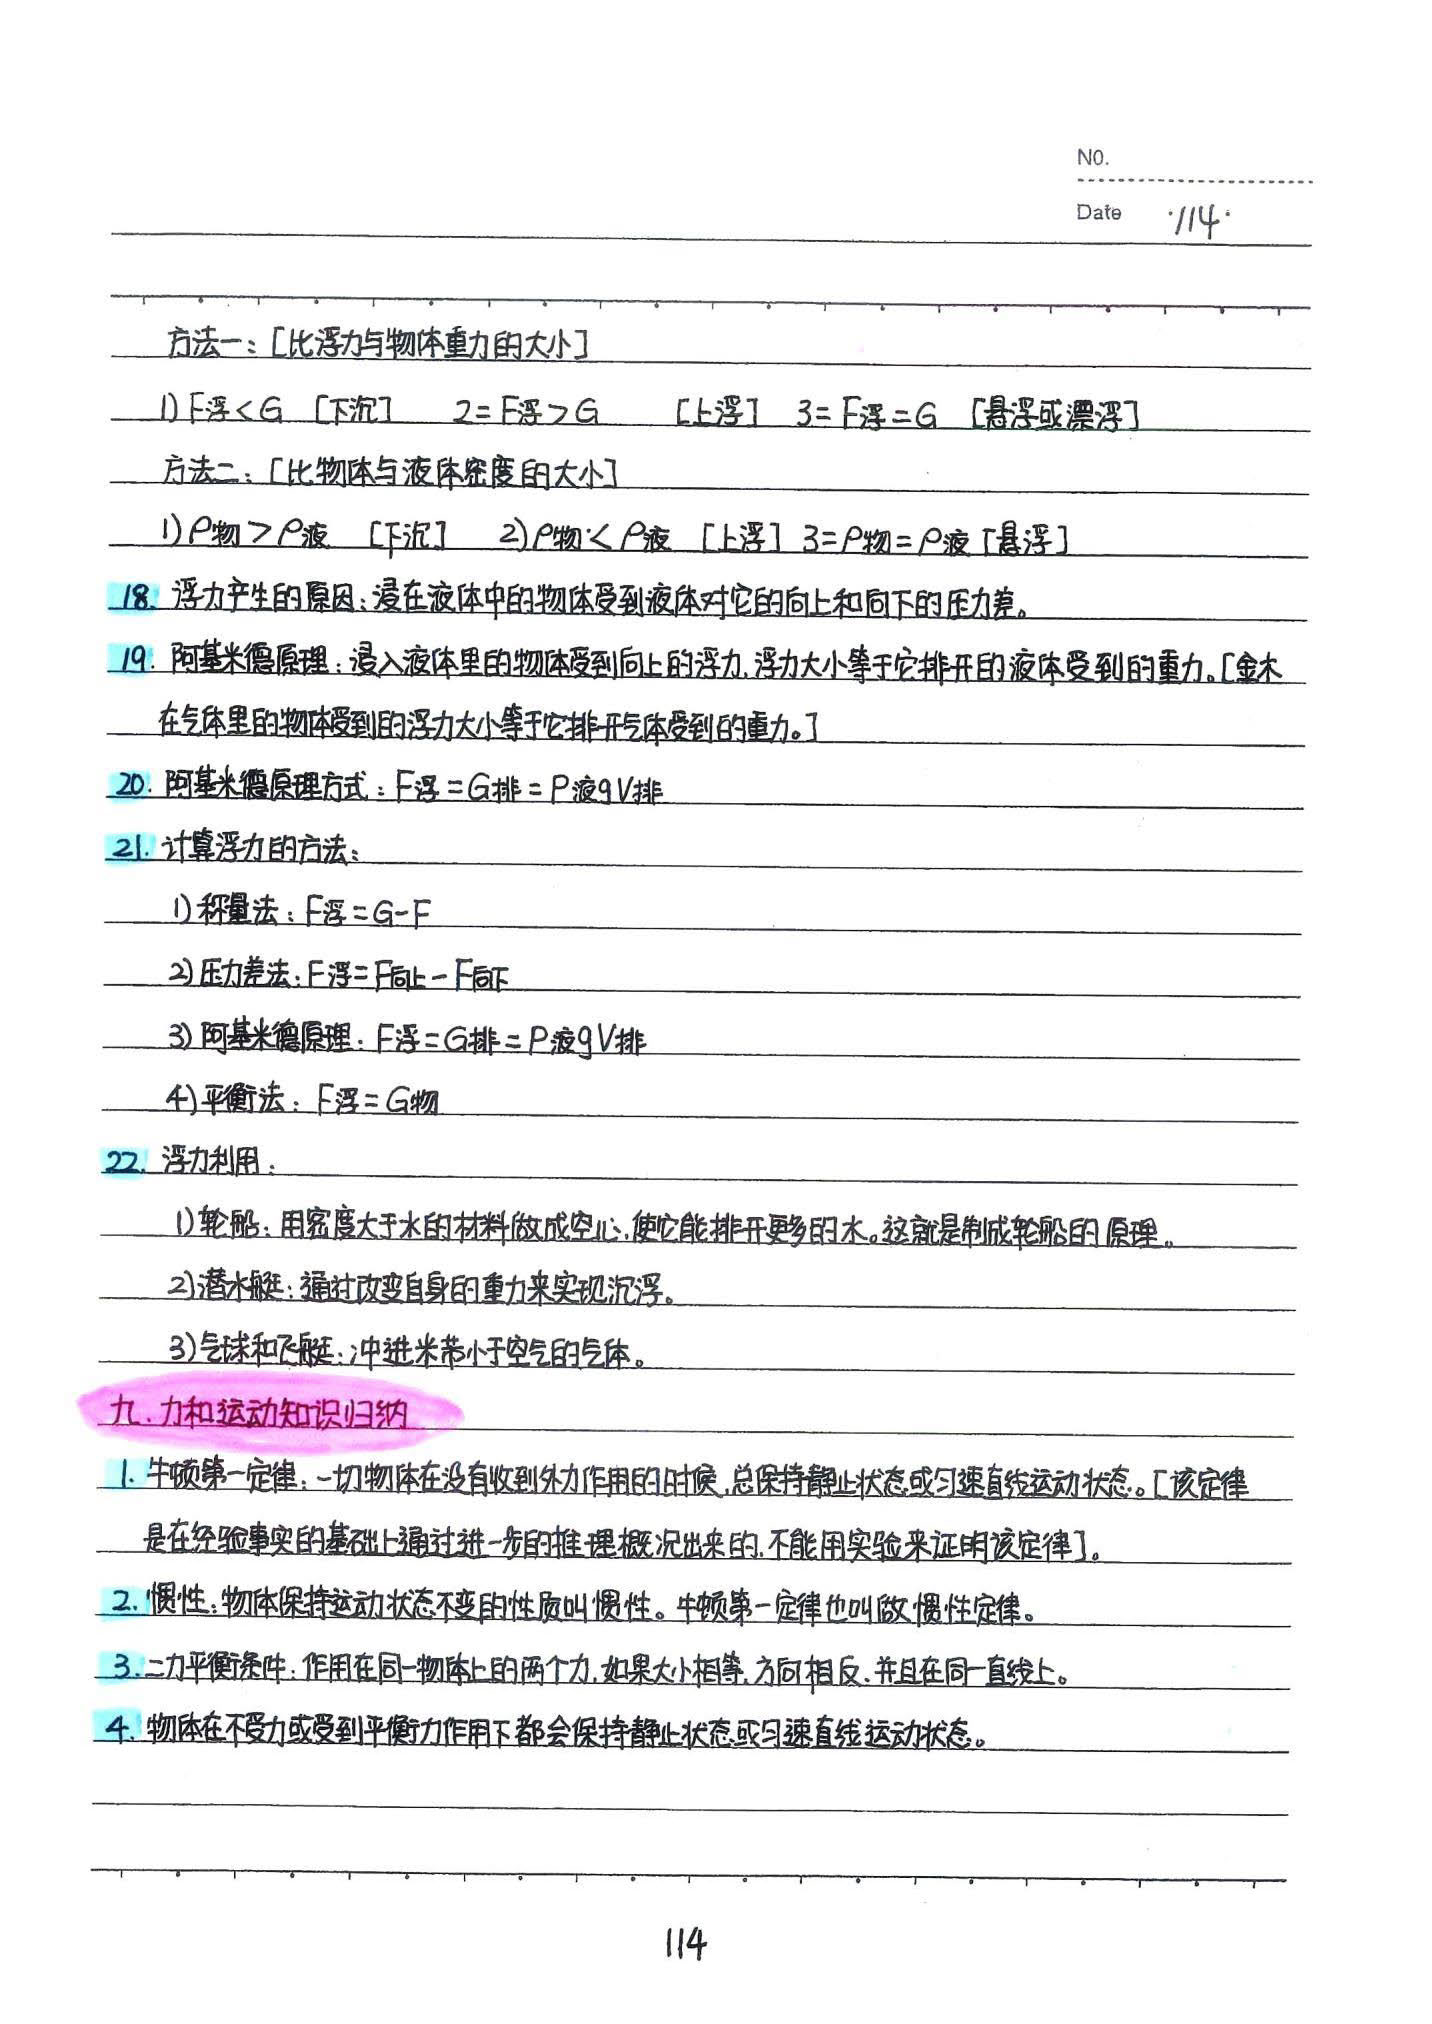 NO.
Date ·114·
方法一:[比浮力与物体重力的大小]
1)F浮<G [下沉] 2=F浮>G [上浮] 3=F浮=G [悬浮或漂浮]
方法二:[比物体与液体密度的大小]
1)ρ物>ρ液 [下沉] 2)ρ物<ρ液 [上浮] 3=ρ物=ρ液[悬浮]
18. 浮力产生的原因:浸在液体中的物体受到液体对它的向上和向下的压力差。
19. 阿基米德原理:浸入液体里的物体受到向上的浮力,浮力大小等于它排开的液体受到的重力。[金木
在气体里的物体受到的浮力大小等于它排开气体受到的重力。]
20. 阿基米德原理方式:F浮=G排=P液gV排
21. 计算浮力的方法:
1)称量法:F浮=G-F
2)压力差法:F浮=F向上-F向下
3)阿基米德原理:F浮=G排=P液gV排
4)平衡法:F浮=G物
22. 浮力利用:
1)轮船:用密度大于水的材料做成空心,使它能排开更多的水。这就是制成轮船的原理。
2)潜水艇:通过改变自身的重力来实现沉浮。
3)气球和飞艇:冲进米带小于空气的气体。
九、力和运动知识归纳
1. 牛顿第一定律:一切物体在没有收到外力作用的时候,总保持静止状态或匀速直线运动状态。[该定律
是在经验事实的基础上通过进一步的推理概况出来的,不能用实验来证明该定律]。
2. 惯性:物体保持运动状态不变的性质叫惯性。牛顿第一定律也叫做惯性定律。
3. 二力平衡条件:作用在同一物体上的两个力,如果大小相等,方向相反,并且在同一直线上。
4. 物体在不受力或受到平衡力作用下都会保持静止状态或匀速直线运动状态。
114